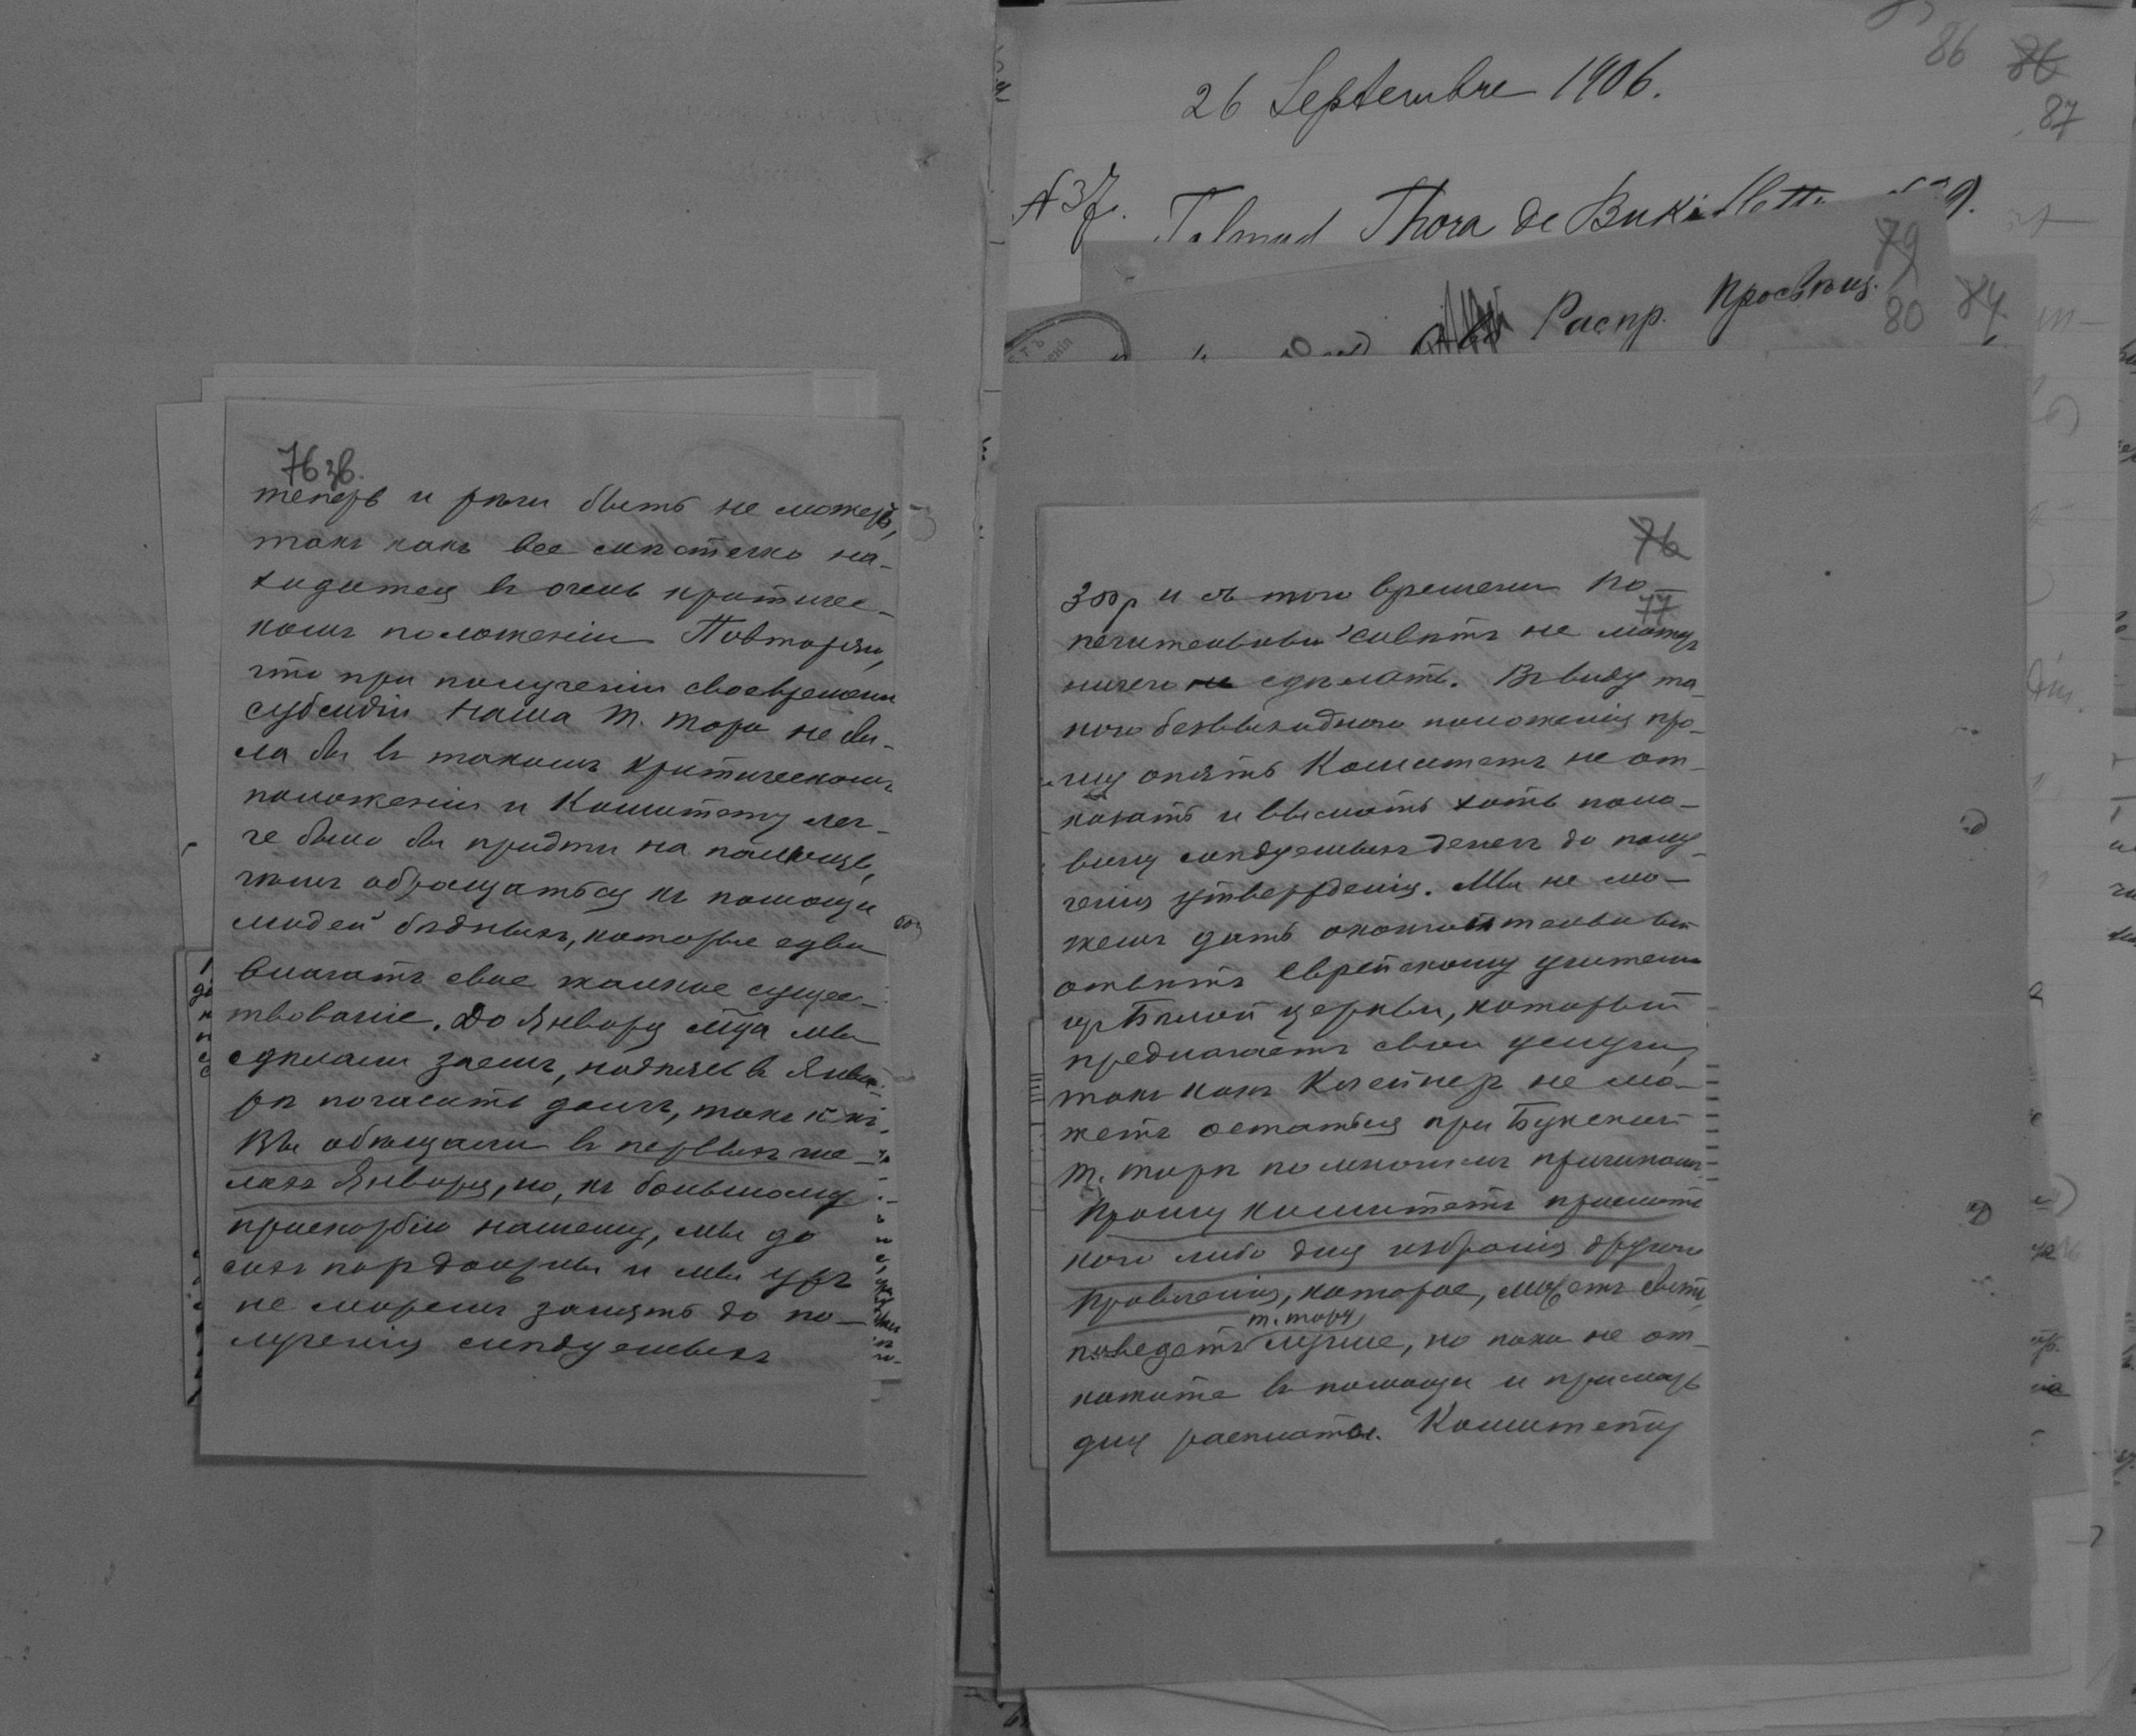 76 зв.
теперь и рѣчи быть не можетъ,
такъ какъ все мѣстечко на-
ходится въ очень критичес-
комъ положеніи Повторяю,
что при полученіи своевременн
субсидіи наша Т. Тора не бы-
ла бы въ такомъ критическомъ
положеніи и Комитету лег-
че было бы придти на помощь,
чѣмъ обращаться къ помощи
людей бѣдныхъ, которые едва
влачатъ свое жалкое сущес-
твованіе. До Января мѣца мы
сдѣлали заемъ, надѣясь въ Янва-
рѣ погасить долгъ, такъ какъ
Вы обѣщали въ первыхъ чис-
лахъ Января, но, къ большому
прискорбію нашему, мы до
сихъ поръ должны и мы ужъ
не можемъ занять до по-
лученія слѣдуемыхъ
26 Septembre 1906.
N 37. Talmud Thora de Buki
86 86
87
Распр. Просвѣщ.
79
80 84
76
77
300 р и съ того времени По-
печительный Совѣтъ не можетъ
ничего не сдѣлать. Въ виду та-
кого безвыходнаго положенія про-
шу опять Комитетъ не от-
казать и выслать хоть поло-
вину слѣдуемыхъ денегъ до полу-
ченія утвержденія. Мы не мо-
жемъ дать окончательный
отвѣтъ Еврейскому учителю
изъ Бѣлой церкви, который
предлагаетъ свои услуги,
такъ какъ Клейнеръ не мо-
жетъ остаться при Букской
Т. торѣ по многимъ причинамъ.
Прошу комитетъ прислать
кого либо для избранія другого
Правленія, которое, можетъ быть,
т. тору
поведетъ лучше, но пока не от-
кажите въ помощи и пришлите
для расплаты. Комитету